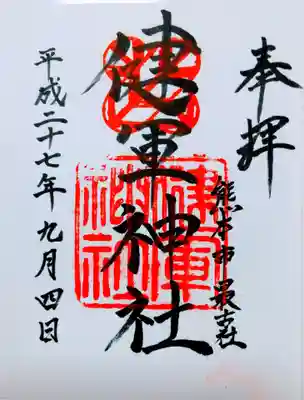 奉拝
熊本市最古社
健軍神社
平成二十七年九月四日
健軍神社